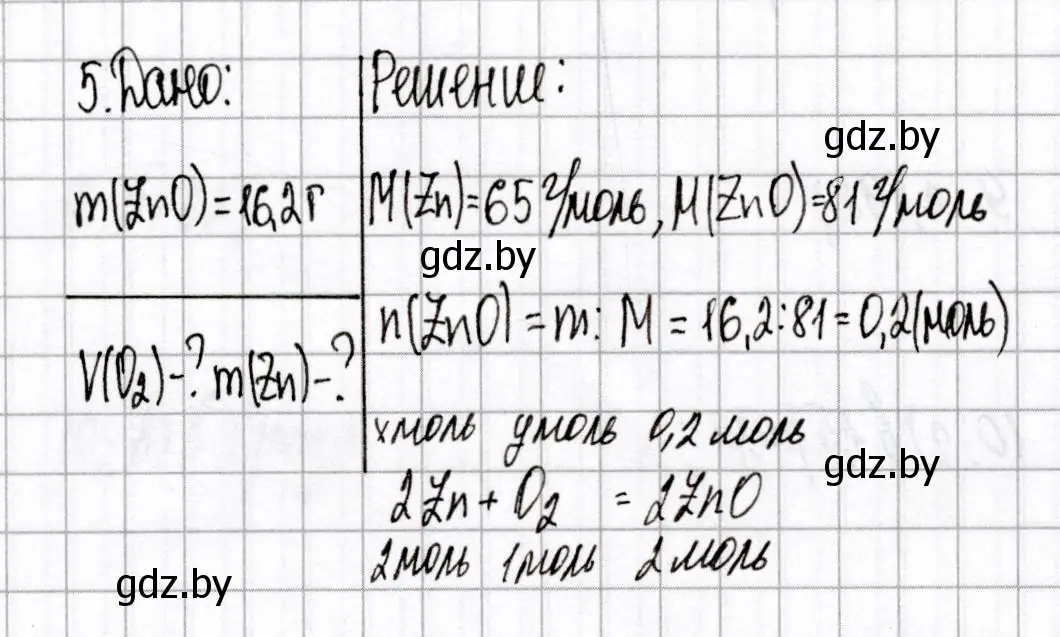 5. Дано:
m(ZnO) = 16,2 г
V(O₂) - ? m(Zn) - ?
Решение:
gdz.by
M(Zn) = 65 г/моль, M(ZnO) = 81 г/моль
gdz.by
n(ZnO) = m : M = 16,2 : 81 = 0,2 (моль)
x моль y моль 0,2 моль
gdz.by
2Zn + O₂ = 2ZnO
2 моль 1 моль 2 моль
gdz.by